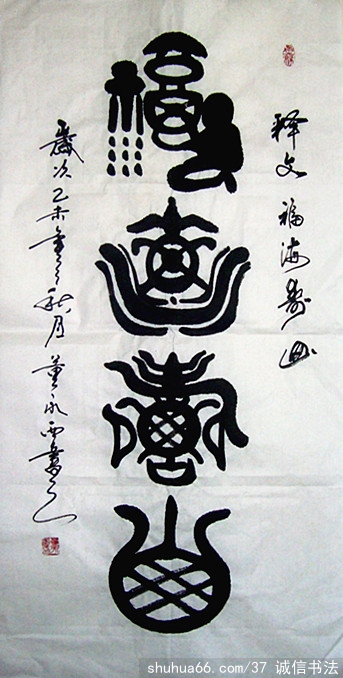 释文 福海寿山
福海寿山
歲次乙未年之秋月 董永西書
shuhua66.com/37 诚信书法